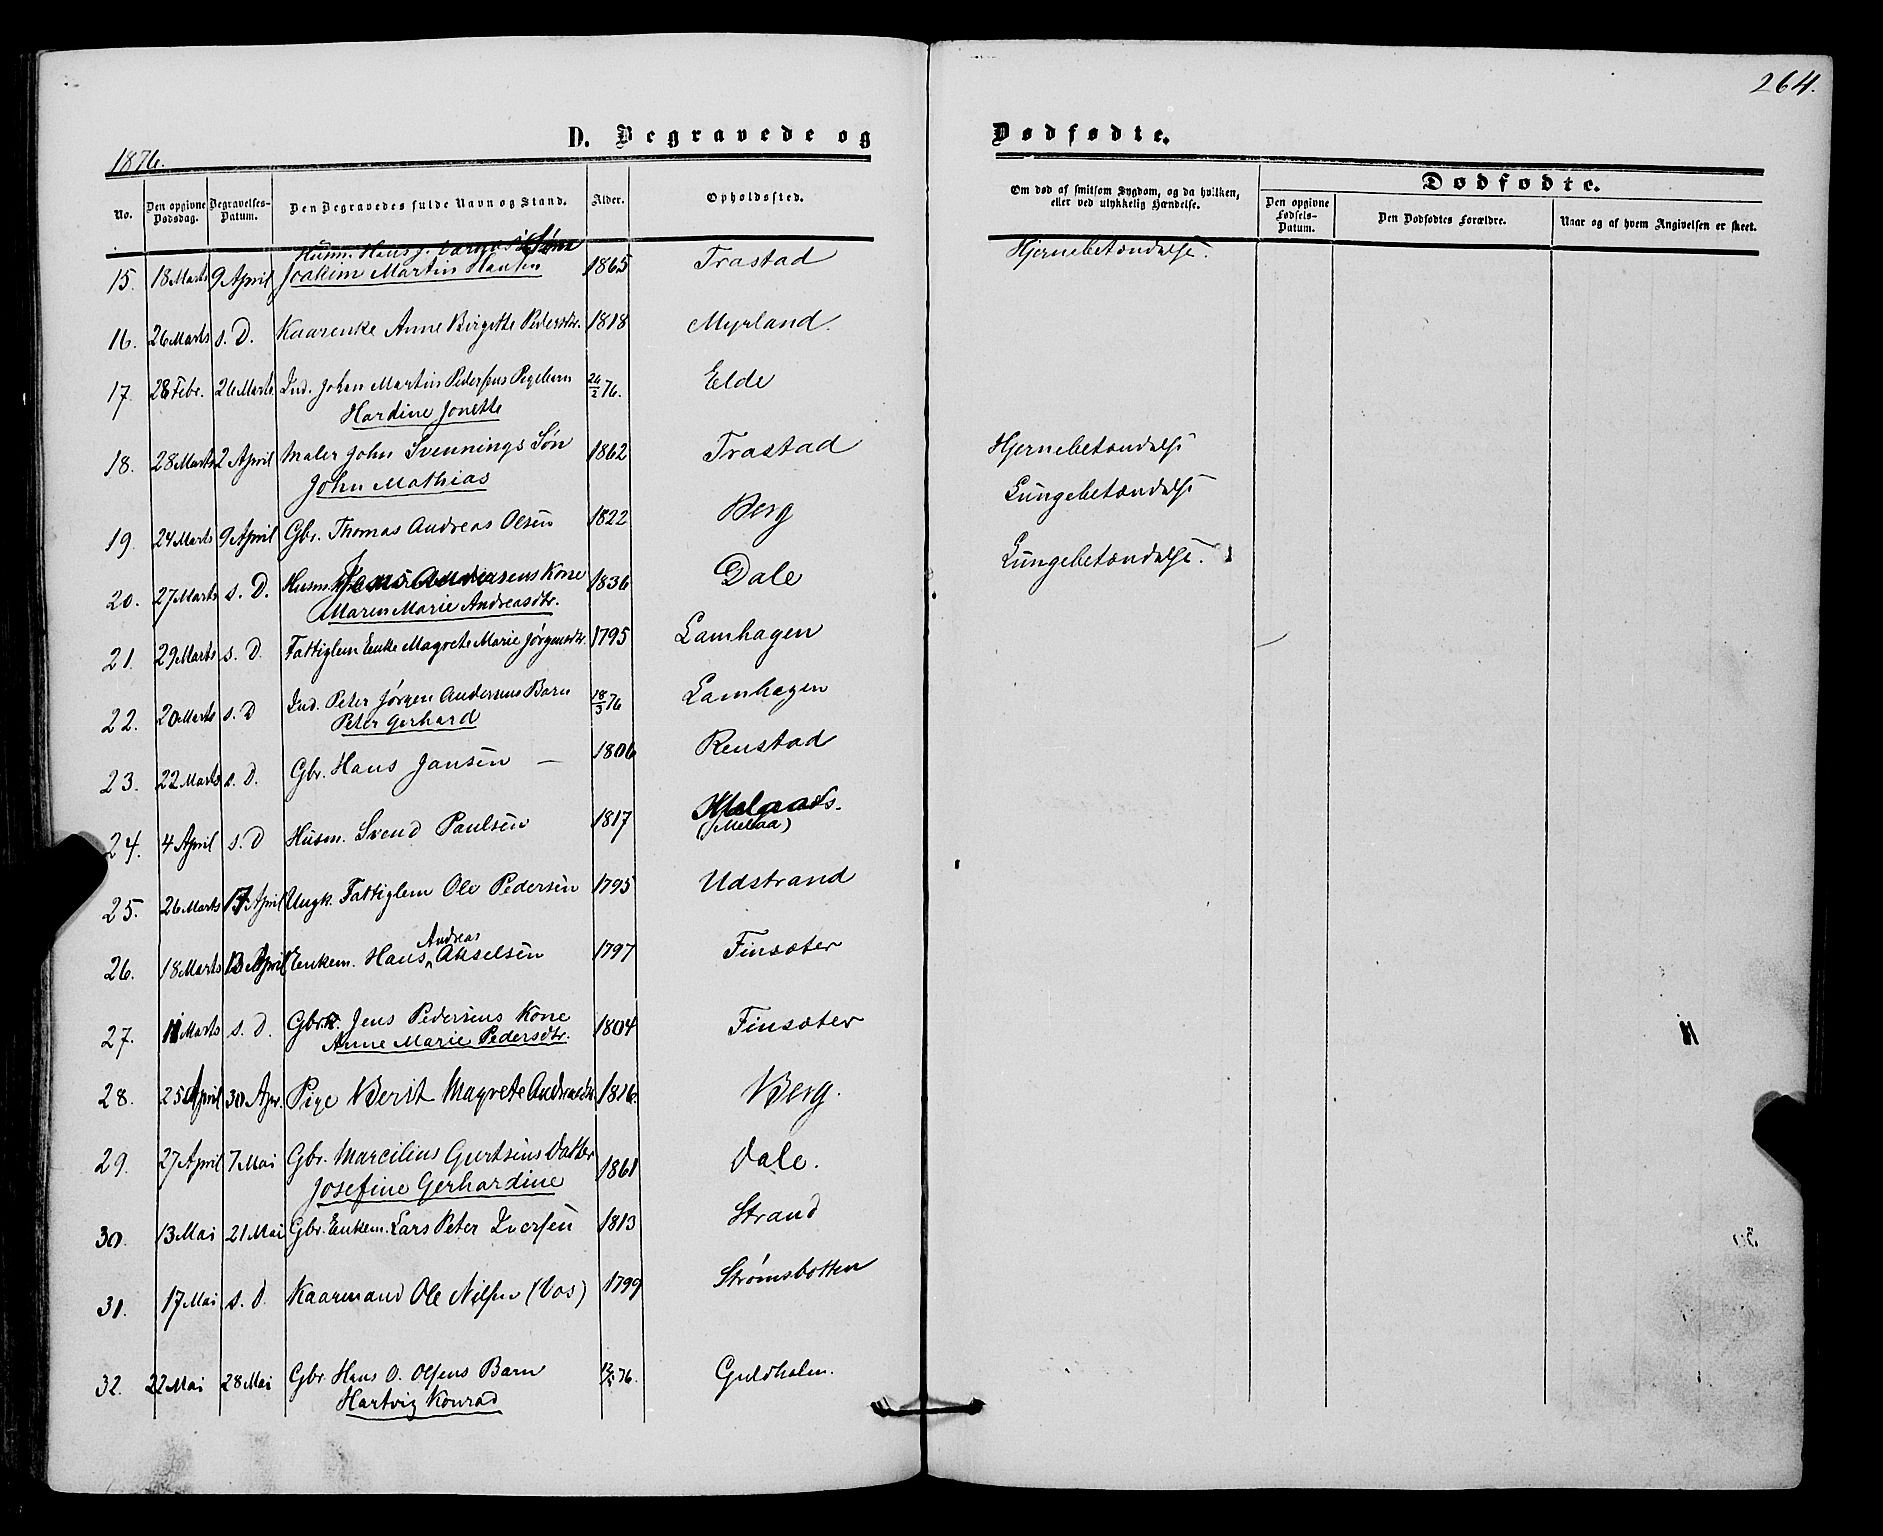 264.
D. Begravede og Dødfødte.
1876.
No.
Den opgivne Dødsdag.
Begravelses-Datum.
Den Begravedes fulde Navn og Stand.
Alder.
Opholdssted.
Om død af smitsom Sygdom, og da hvilken, eller ved ulykkelig Hændelse.
Dødfødte.
Den opgivne Fødsels-Datum.
Den Dødfødtes Forældre.
Naar og af hvem Angivelsen er skeet.
Husm. Hans J. Søn
15. 18 Marts 9 April Joakim Martin Hansen 1865 Trastad Hjernebetændelse.
16. 26 Marts s. D. Kaarenke Anne Birgitte Pedersdtr. 1818 Myrland.
17. 28 Febr. 26 Marts Ind. Johan Martin Pedersens Pigebarn 26/2 76. Elde
Hardine Jonette
18. 28 Marts 2 April Maler John Svennings Søn 1862 Trastad Hjernebetændelse
John Mathias
19. 24 Marts 9 April Gbr. Thomas Andreas Olsen 1822 Berg Lungebetændelse
20. 27 Marts s. D. Husm. Jens Andreasens Kone 1836 Dale Lungebetændelse.
Maren Marie Andreasdtr.
21. 29 Marts s. D. Fattiglem Enke Magrete Marie Jørgensdtr. 1795 Lamhagen
22. 20 Marts s. D Ind. Peter Jørgen Andersens Barn 18/3 76 Lamhagen
Peter Gerhard
23. 22 Marts s. D. Gbr. Hans Jansen — 1806 Renstad
24. 4 April s. D Husm. Svend Paulsen 1817
(Melaa)
25. 26 Marts 17 April Ungk. Fattiglem Ole Pedersen 1795 Udstrand
Andreas
26. 18 Marts 13 April Enkem. Hans Akselsen 1797 Finsæter
27. 11 Marts s. D. Gbr. Jens Pedersens Kone 1804 Finsæter
Anne Marie Pedersdtr.
28. 25 April 30 Apr. Pige Berit Magrete Andreasdtr 1816. Berg.
29. 27 April 7 Mai Gbr. Marcilius Gertsens Datter 1861 Dale.
Josefine Gerhardine
30. 13 Mai 21 Mai Gbr. Enkem. Lars Peter Iversen 1813 Strand
31. 17 Mai s. D. Kaarmand Ole Nilsen (Vos) 1799 Strømsbotten
32. 22 Mai 28 Mai Gbr Hans O. Olsens Barn 76. Guldholm.
Hartvig Konrad